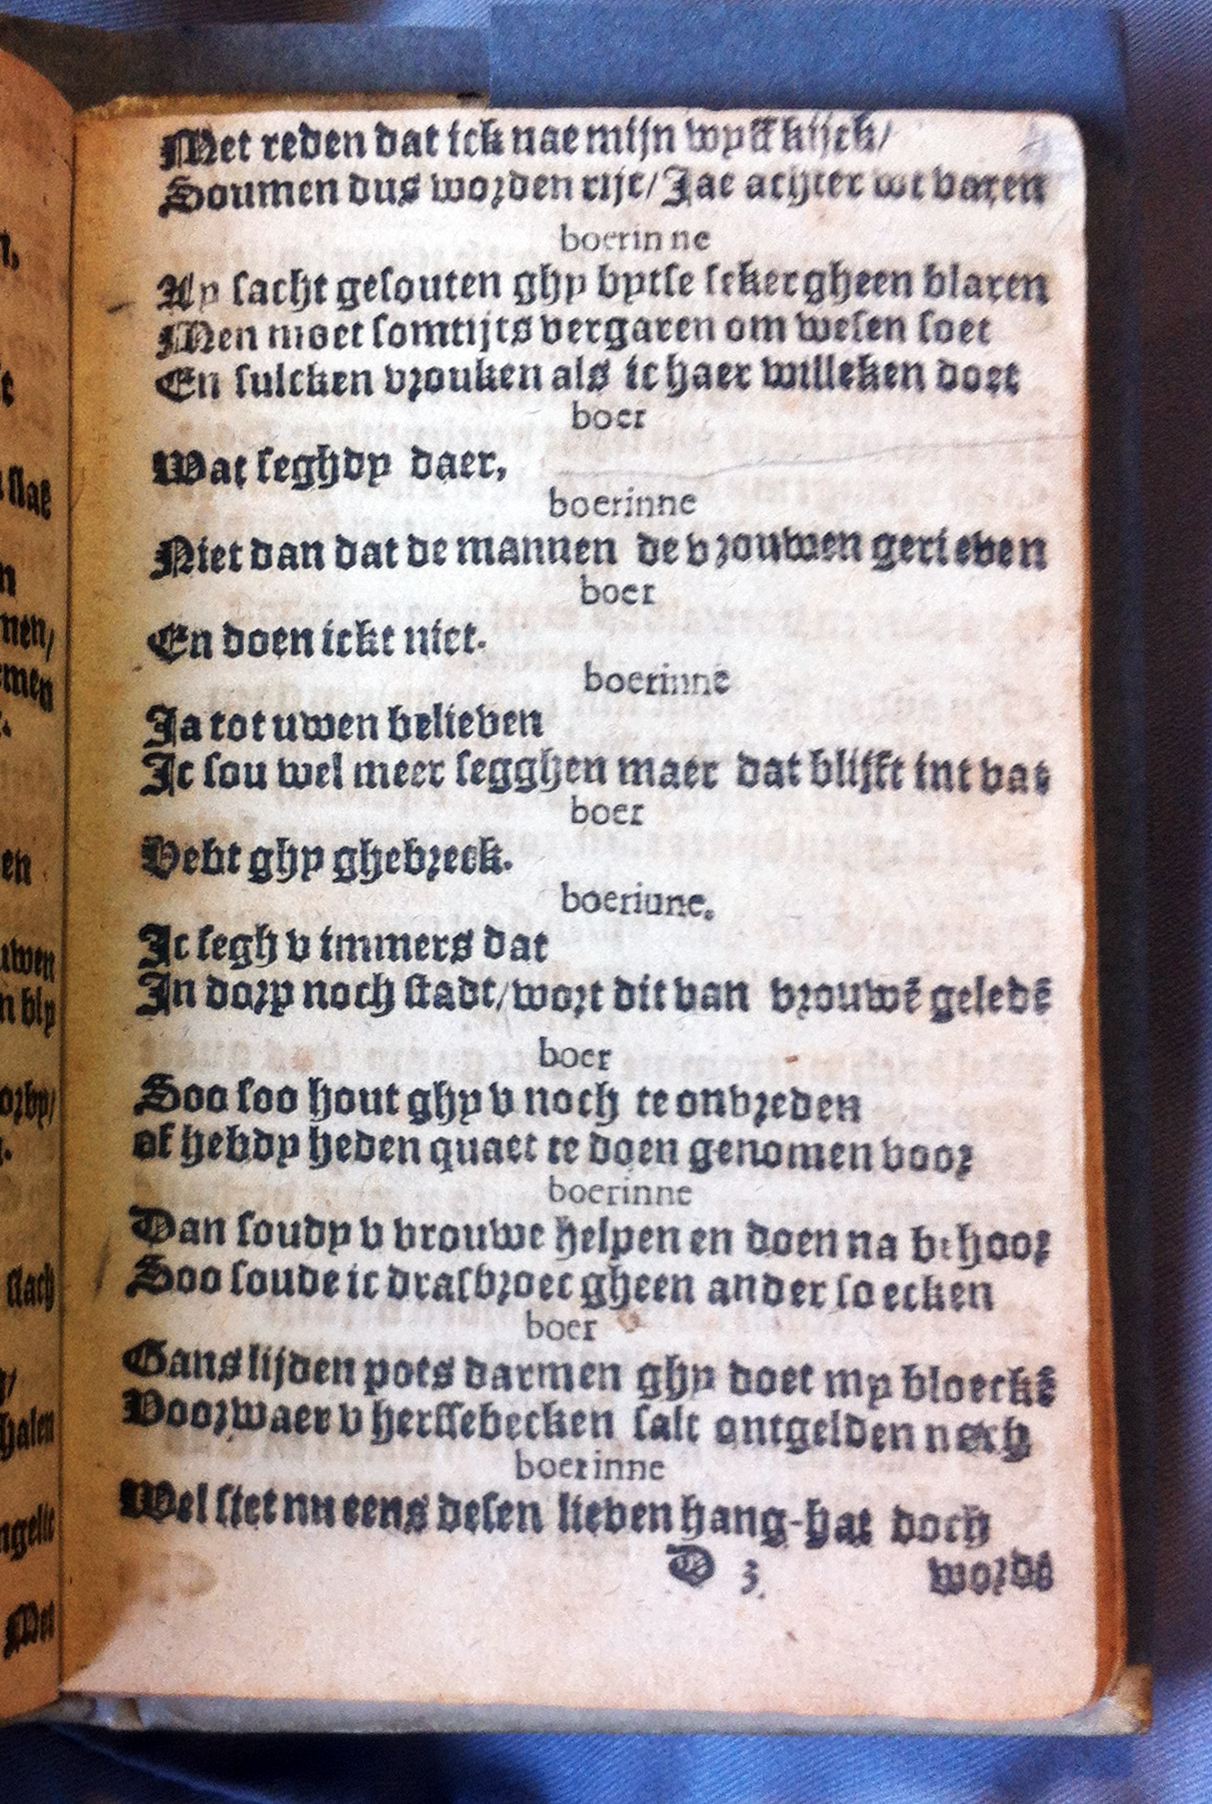 Met reden dat ick nae mijn wyff kijck/
Soumen dus worden rijc/Jae achter wt varen
boerinne
Ay sacht gesouten ghy bytse seker gheen blaren
Men moet somtijts vergaren om wesen soet
En sulcken vrouken als ic haer willeken doet
boer
Wat seghdy daer,
boerinne
Niet dan dat de mannen de vrouwen gerieven
boer
En doen ickt niet.
boerinne
Ja tot uwen believen
Jc sou wel meer segghen maer dat blijft int vat
boer
Hebt ghy ghebreck.
boeriune.
Jc segh v immers dat
In dorp noch stadt/wort dit van vrouwē geledē
boer
Soo soo hout ghy v noch te onvreden
of hebdy heden quaet te doen genomen voor
boerinne
Dan soudy v vrouwe helpen en doen na behoor
Soo soude ic drasbroec gheen ander soecken
boer
Gans lijden pots darmen ghy doet my vloeckē
Voorwaer v herssebecken salt ontgelden noch
boerinne
Wel siet nu eens desen lieven hang-hat doch
D 3. wordē
n,
t
slae
n
nen/
emen
en
uwen
n bly
orby/
slach
halen
ngelic
Met